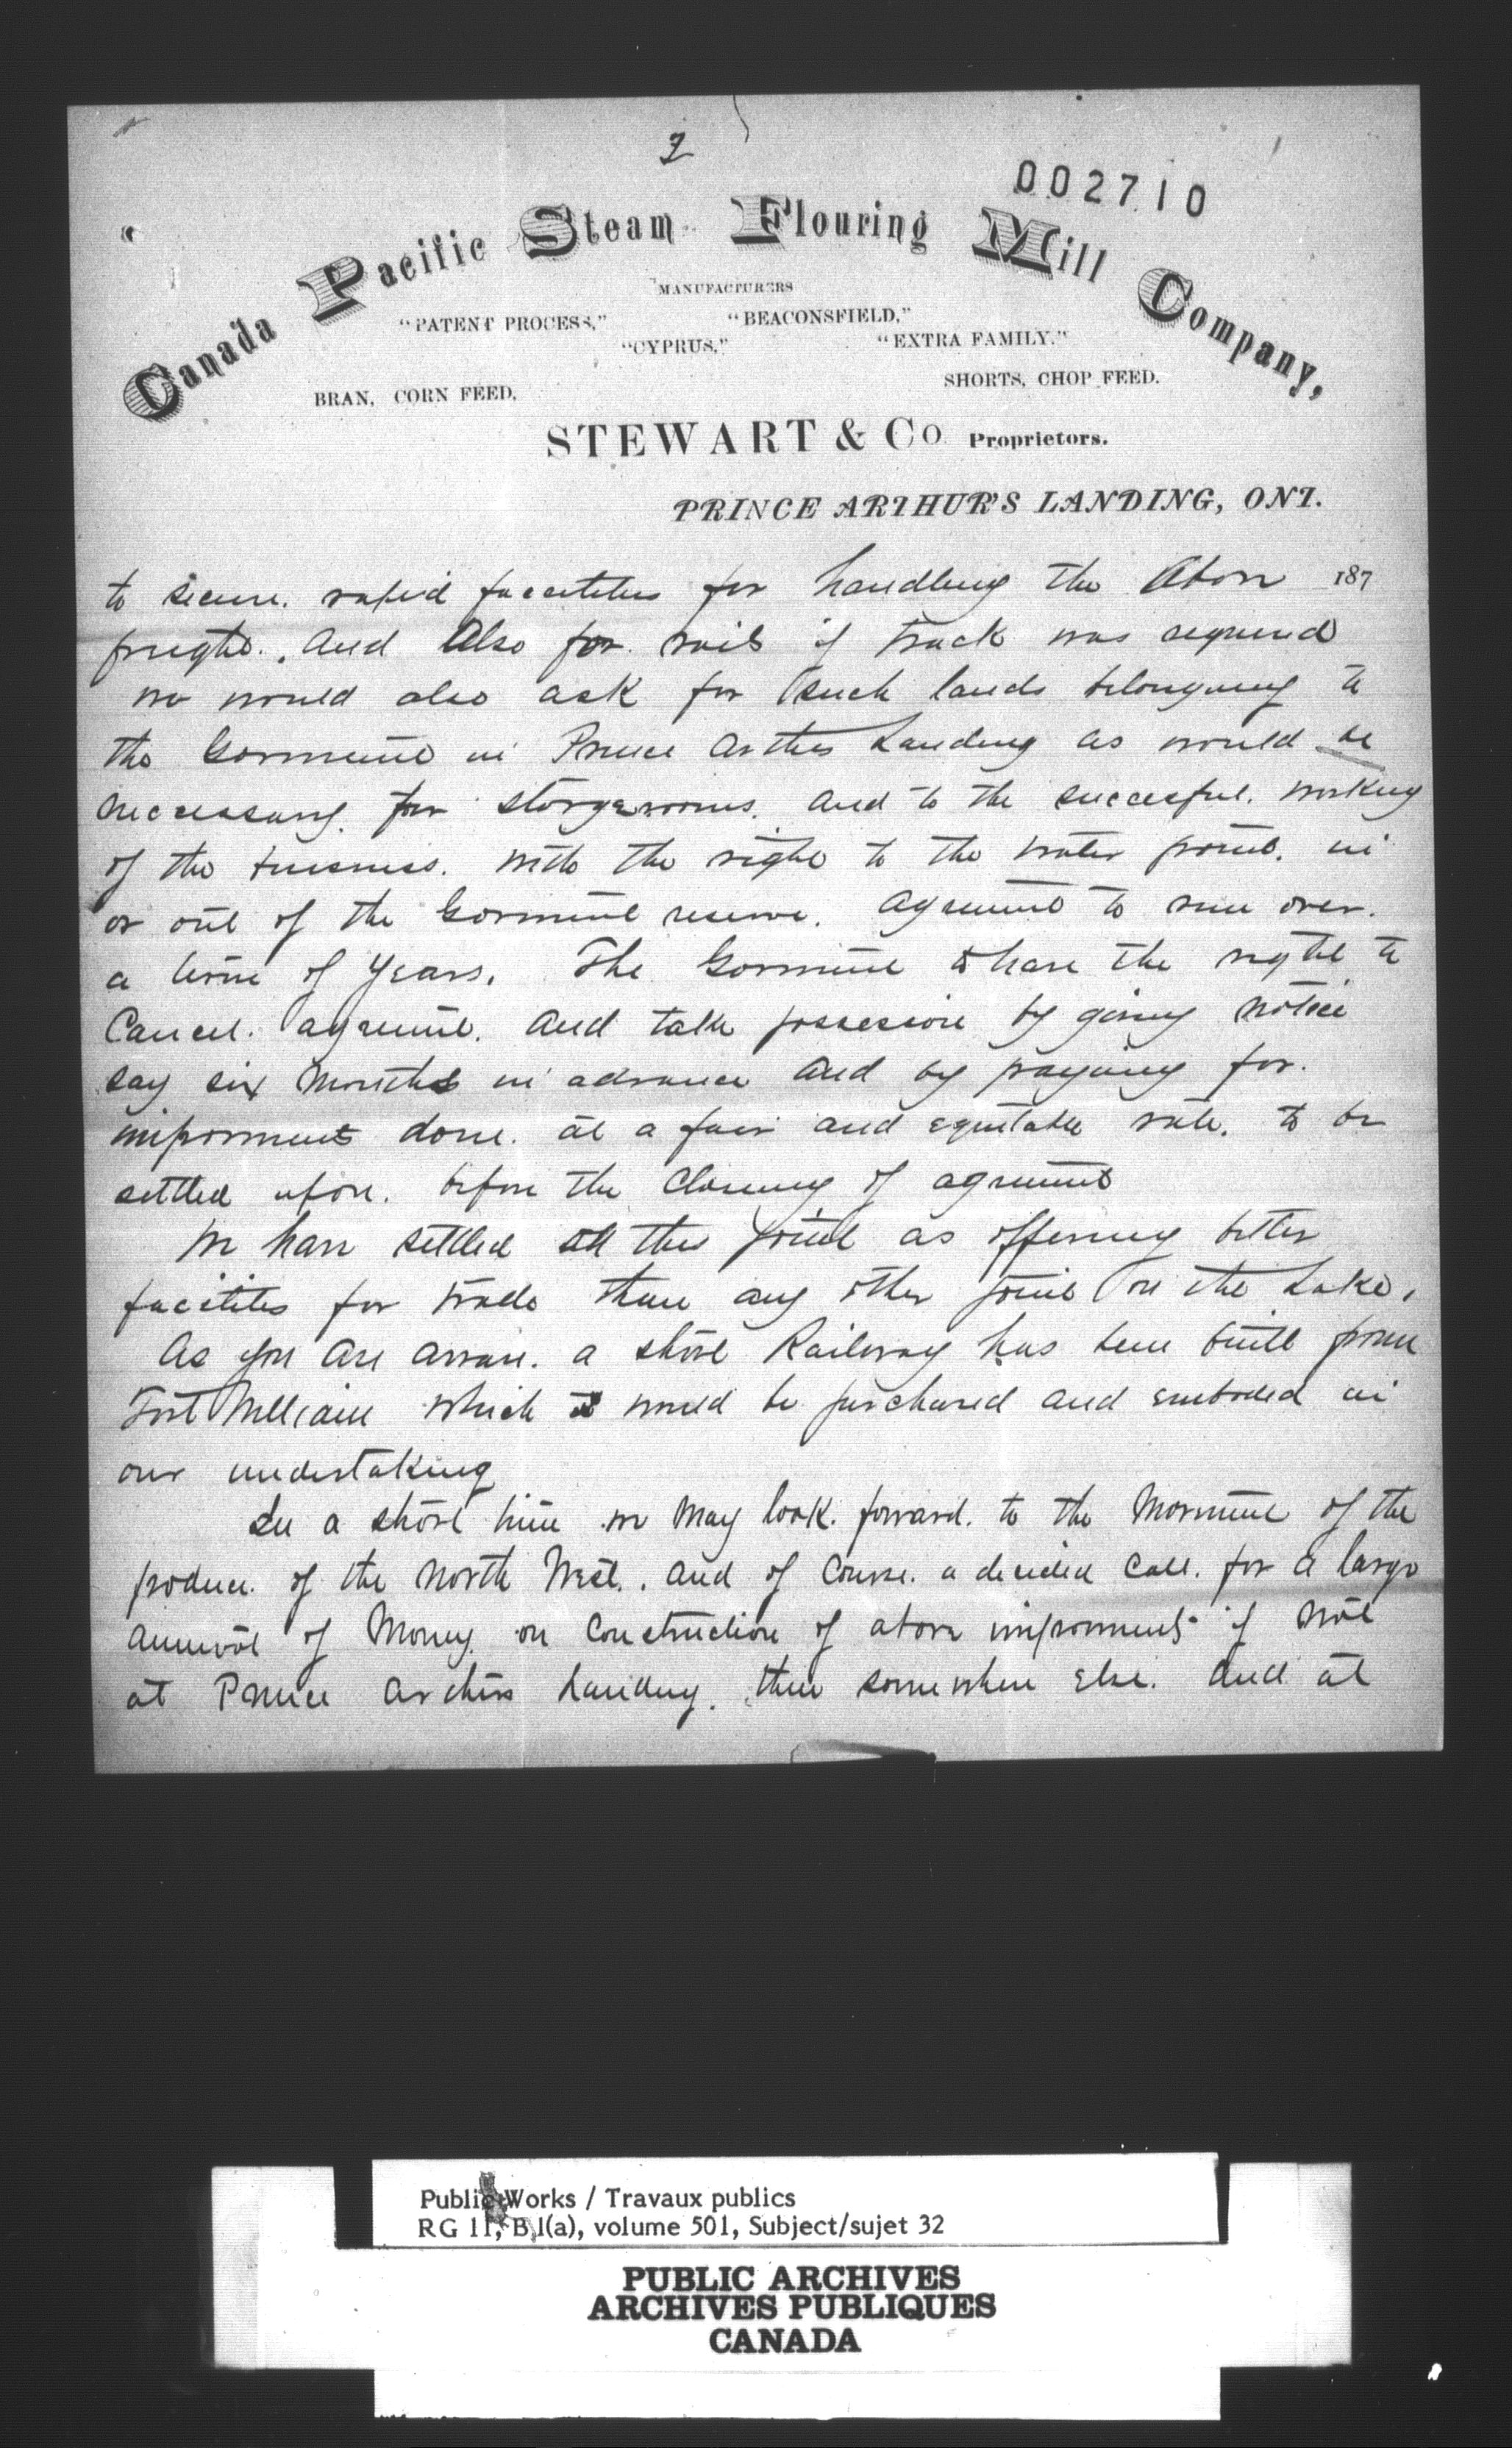 2
002710
Canada Pacific Steam Flouring Mill Company,
MANUFACTURERS
"PATENT PROCESS," "BEACONSFIELD,"
"CYPRUS," "EXTRA FAMILY."
BRAN, CORN FEED, SHORTS, CHOP FEED.
STEWART & Co. Proprietors.
PRINCE ARTHUR'S LANDING, ONT.
187
to secure. rapid facilities for handling the above
freight. And Also for rails if track was required
we would also ask for such lands belonging to
the Goverment in Prince Arthurs Landing as would be
necessary. for storgerooms. and to the succesful. working
of the buisness. with the right to the water front. in
or out of the Goverment reserve. agreement to run over.
a term of Years. The Goverment to have the right to
Cancel. agreement. and take possession by giving notice
say six months in advance and by paying for.
improvments done. at a fair and equitable rate. to be
settled upon. before the Closeing of agreement
We have settled at this point as offering better
facilites for trade than any other point on the Lake.
As you are aware. a short Railway has been built from
Fort William which would be purchased and embodied in
our undertaking
In a short time we may look. forward. to the Movment of the
produce. of the North West. and of course. a decided call. for a large
amount of Money. on Construction of above improvments if not
at Prince Arthurs Landing. then somewhere Else. And at
Public Works / Travaux publics
RG 11, B 1(a), volume 501, Subject/sujet 32
PUBLIC ARCHIVES
ARCHIVES PUBLIQUES
CANADA